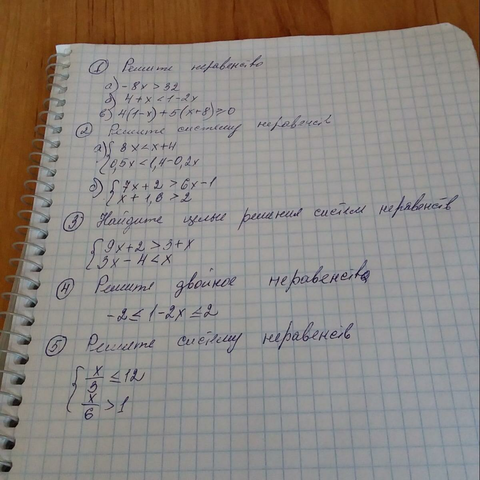 ① Решите неравенство
а) -8x > 32
б) 4+x < 1-2x
в) 4(1-x)+5(x+8) ≥ 0
② Решите систему неравенств
а) { 3x < x+4
0,5x < 1,4-0,2x
б) { 7x+2 > 6x-1
x+1,8 > 2
③ Найдите целые решения систем неравенств
{ 9x+2 > 3+x
3x-4 < x
④ Решите двойное неравенство
-2 ≤ 1-2x ≤ 2
⑤ Решите систему неравенств
{ x/3 ≤ 12
x/6 > 1